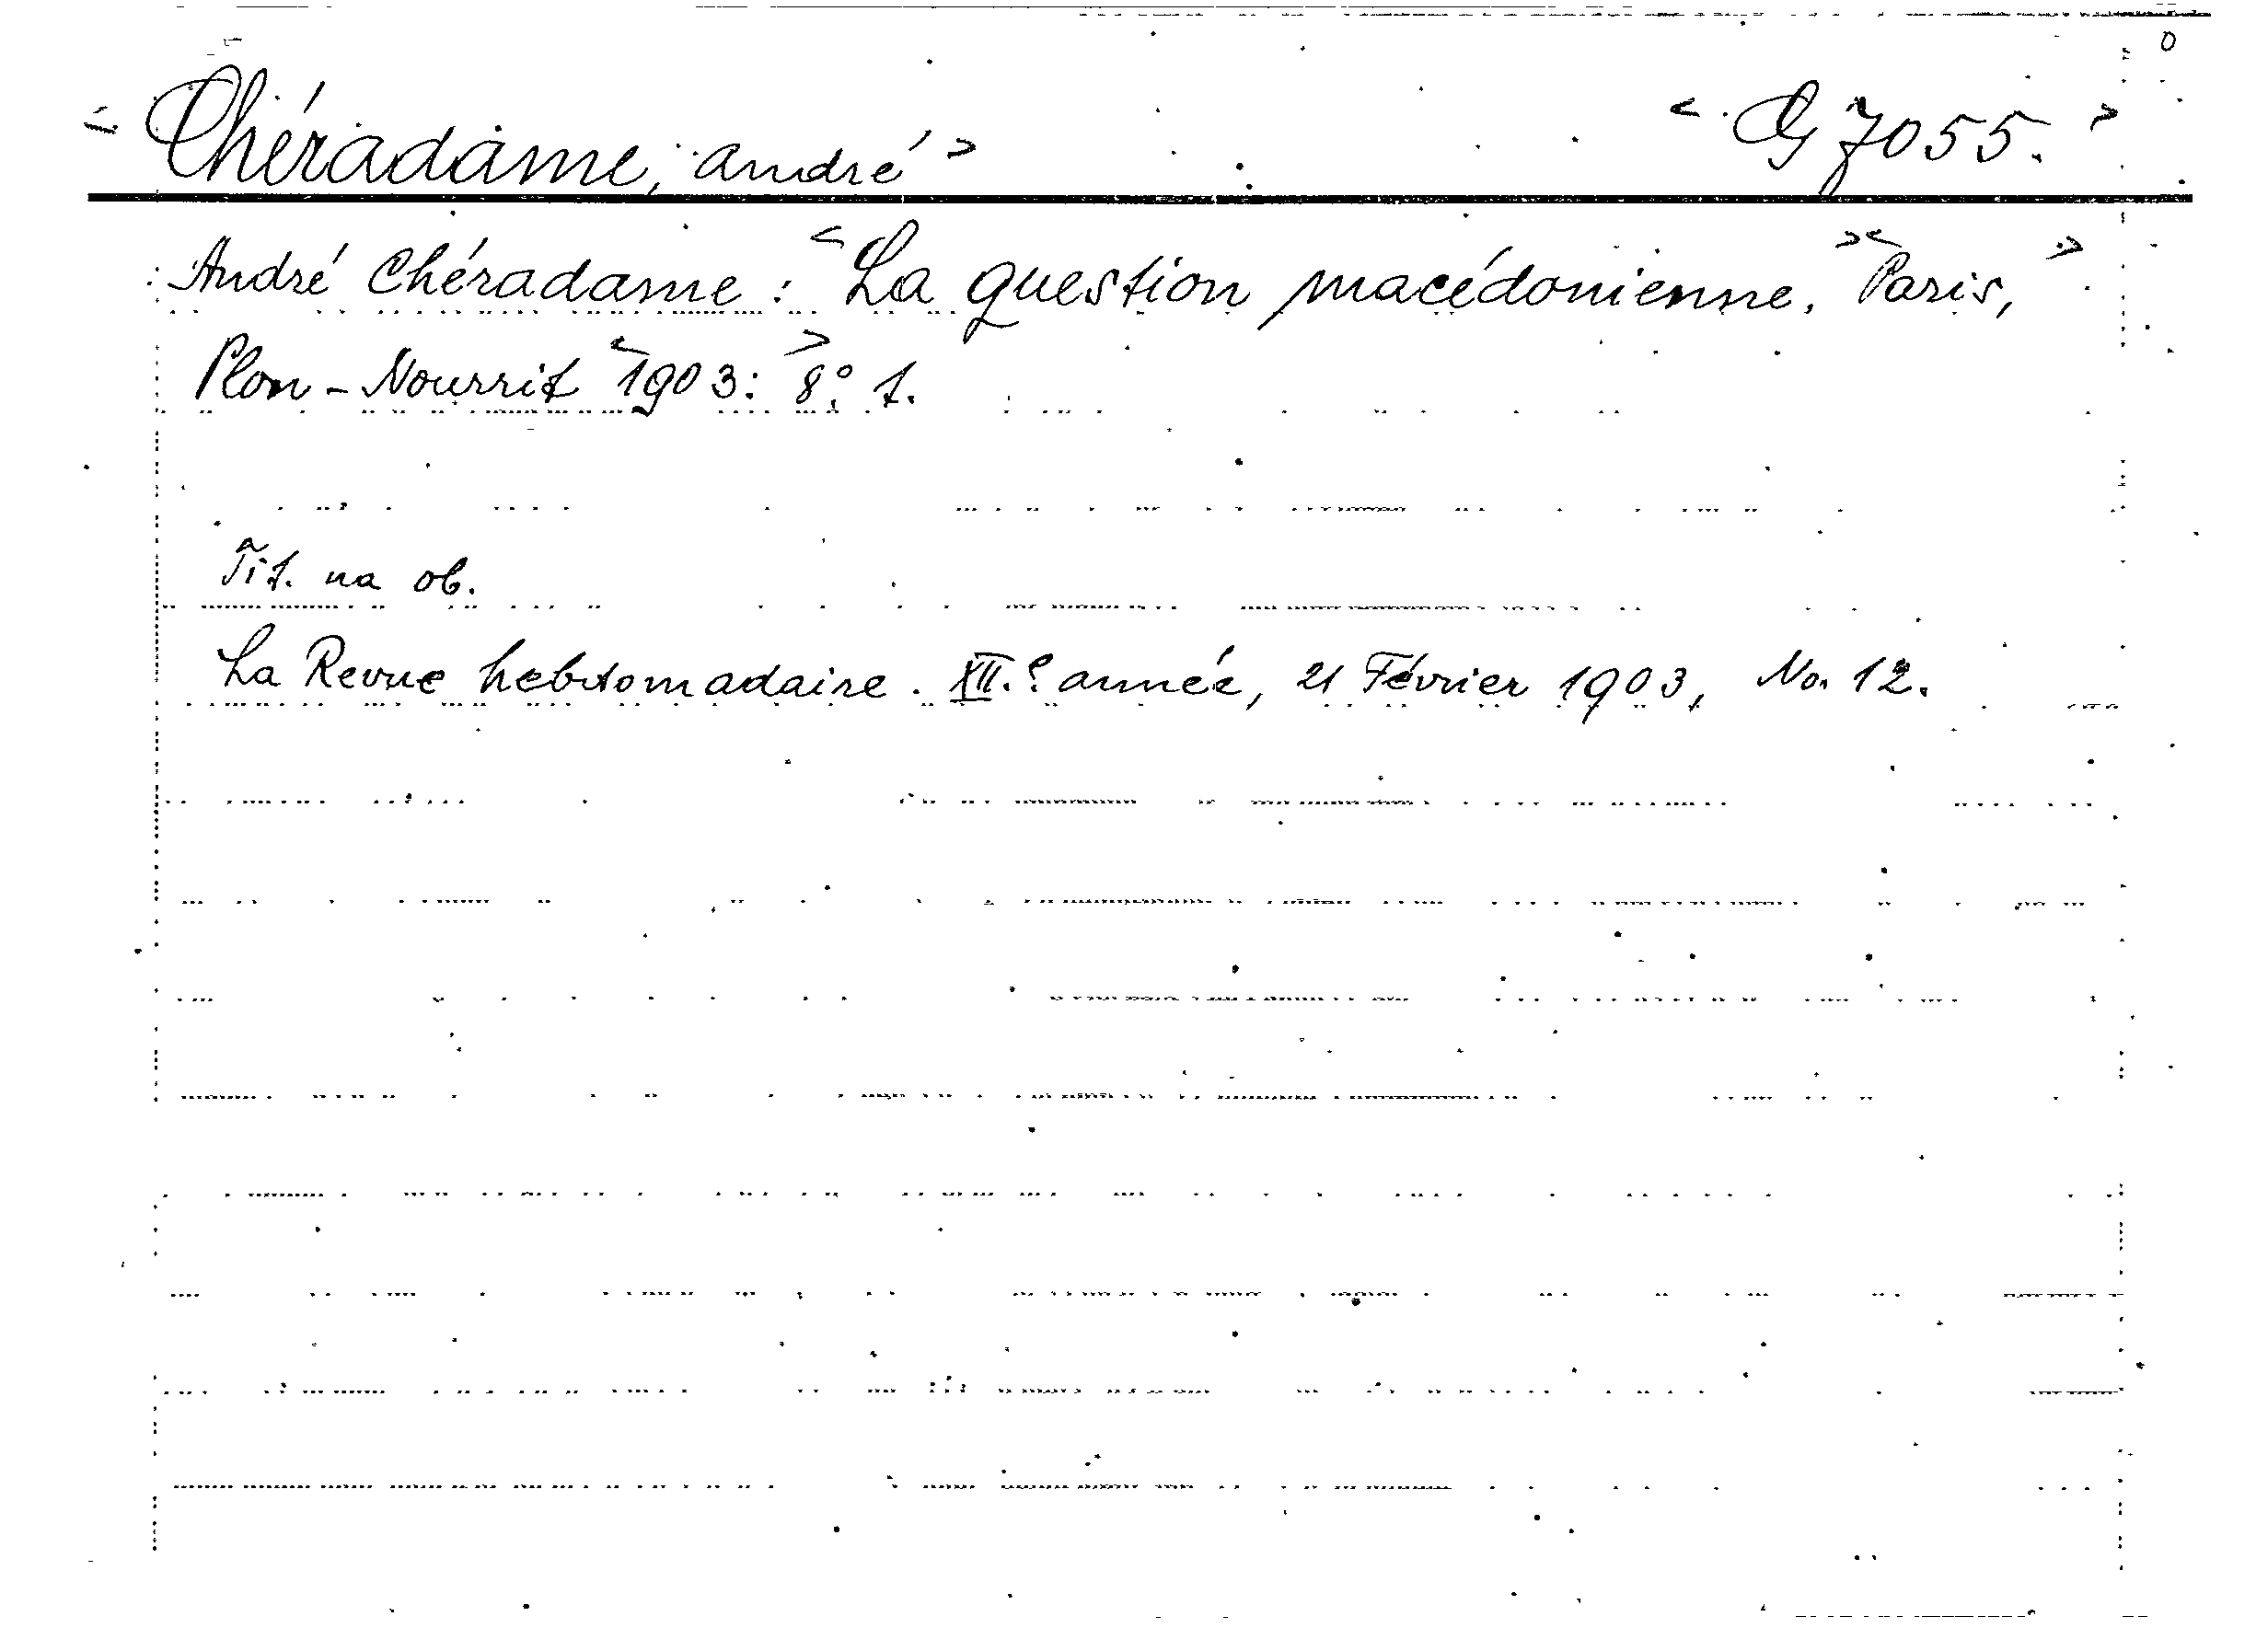 <Chéradame, André> <G 7055.>
André Chéradame: <La question macédonienne.> <Paris,>
Plon-Nourrit <1903:> 8°. 1.
Tit. na ob.
La Revue hebdomadaire. XII.e année, 21 Février 1903, No. 12.